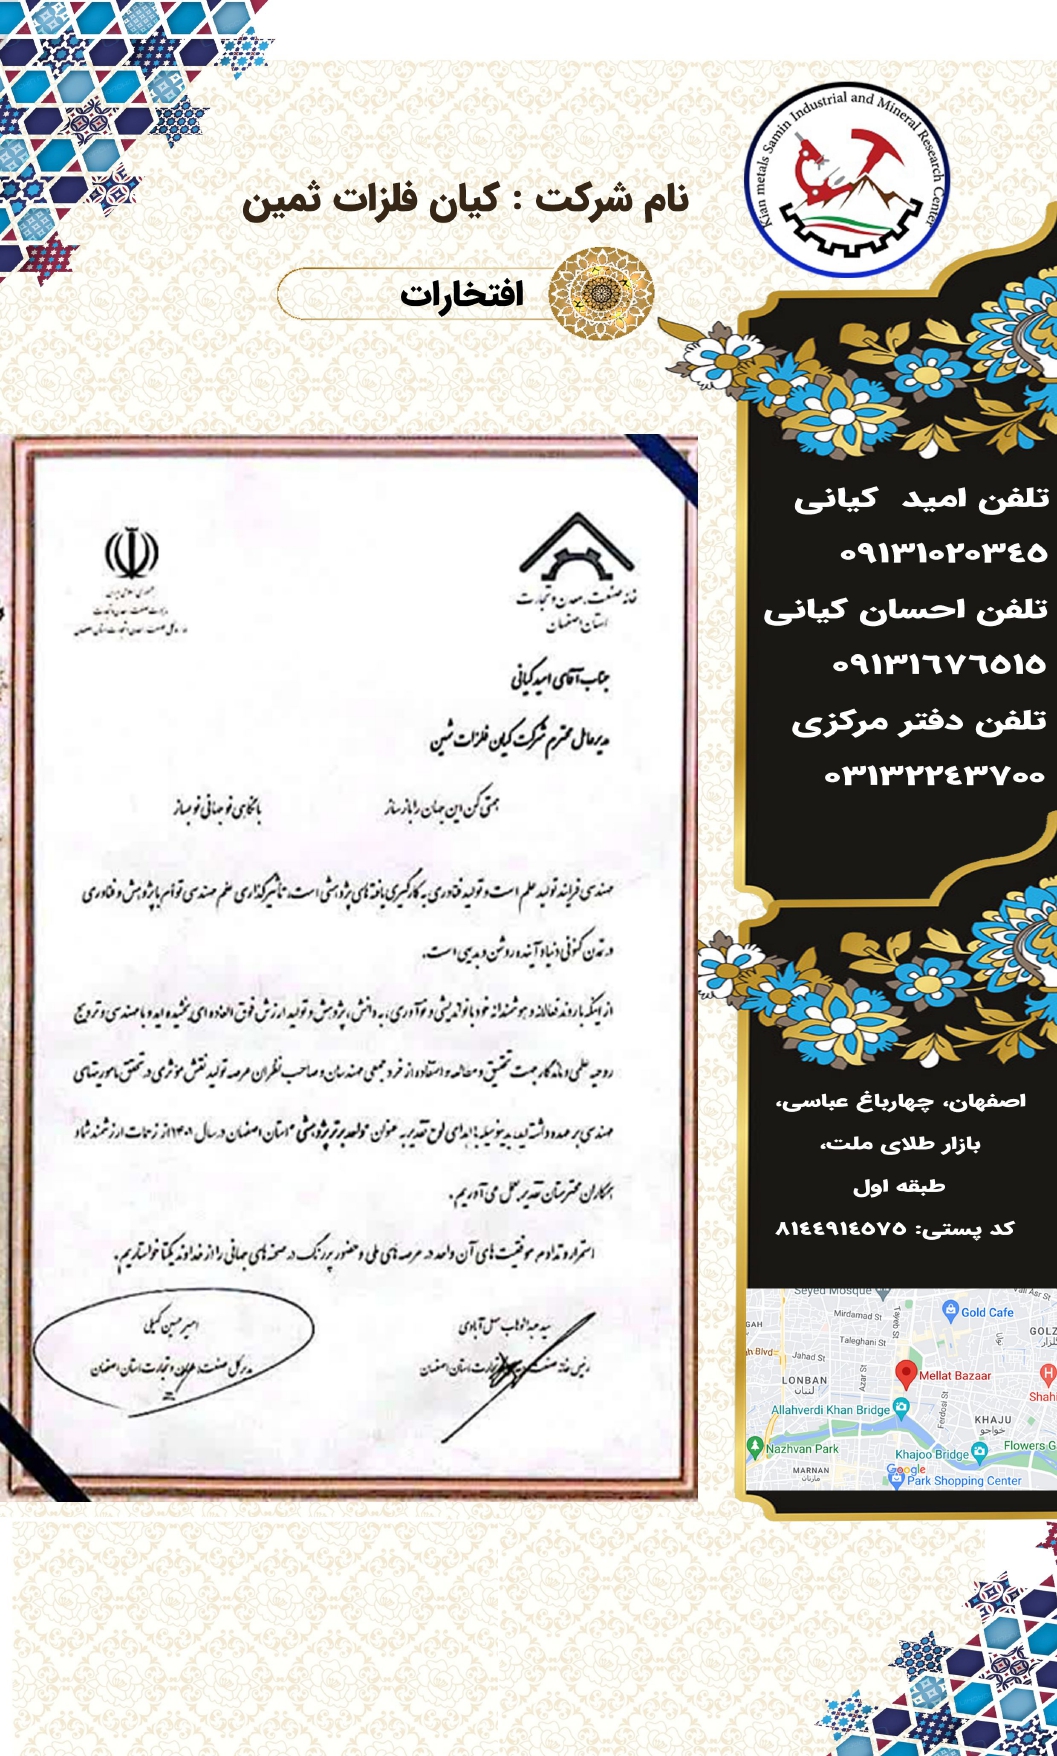 Kian metals Samin Industrial and Mineral Research Center
نام شرکت : کیان فلزات ثمین
افتخارات
تلفن امید کیانی
۰۹۱۳۱۰۲۰۳٤٥
تلفن احسان کیانی
۰۹۱۳۱٦۷٦٥۱٥
تلفن دفتر مرکزی
۰۳۱۳۲۲٤۳۷۰۰
اصفهان، چهارباغ عباسی،
بازار طلای ملت،
طبقه اول
کد پستی: ۸۱٤٤۹۱٤٥۷٥
خانه صنعت، معدن و تجارت
استان اصفهان
جمهوری اسلامی ایران
وزارت صنعت، معدن و تجارت
سازمان صنعت، معدن و تجارت استان اصفهان
جناب آقای امید کیانی
مدیرعامل محترم شرکت کیان فلزات ثمین
همتی کن این جهان را باز ساز
با نگاهی نو جهانی نو بساز
مهندسی فرایند تولید علم است و تولید فناوری به کارگیری یافته های پژوهشی است، تأثیرگذاری علم مهندسی توأم با پژوهش و فناوری
در تمدن کنونی دنیا و آینده روشن و بدیهی است.
از اینکه با روند فعالانه و هوشمندانه خود با نواندیشی و نوآوری، به دانش، پژوهش و تولید ارزش فوق العاده ای بخشیده اید و با مهندسی و ترویج
روحیه علمی و ماندگار جهت تحقیق و مطالعه و استفاده از خرد جمعی مهندسان و صاحب نظران عرصه تولید نقش مؤثری در تحقق ماموریتهای
مهندسی بر عهده داشته اید، بدینوسیله با اهدای لوح تقدیر به عنوان "واحد برتر پژوهشی" استان اصفهان در سال ۱۴۰۱ از زحمات ارزشمند شما و
همکاران محترمتان تقدیر بعمل می آوریم.
استمرار و تداوم موفقیت های آن واحد در عرصه های ملی و حضور پررنگ در صحنه های جهانی را از خداوند یکتا خواستاریم.
سید عبدالوهاب سهل آبادی
رئیس خانه صنعت، معدن و تجارت استان اصفهان
امیرحسین کمیلی
مدیر کل صنعت، معدن و تجارت استان اصفهان
Seyed Mosque
Vali Asr St
Mirdamad St
Tayeb St
Gold Cafe
GAH
Taleghani St
GOLZ
گلزار
h Blvd
Jahad St
Azar St
Mellat Bazaar
LONBAN
لنبان
Ferdosi St
Shah
Allahverdi Khan Bridge
KHAJU
خواجو
Nazhvan Park
Khajoo Bridge
Flowers G
MARNAN
مارنان
Google
Park Shopping Center